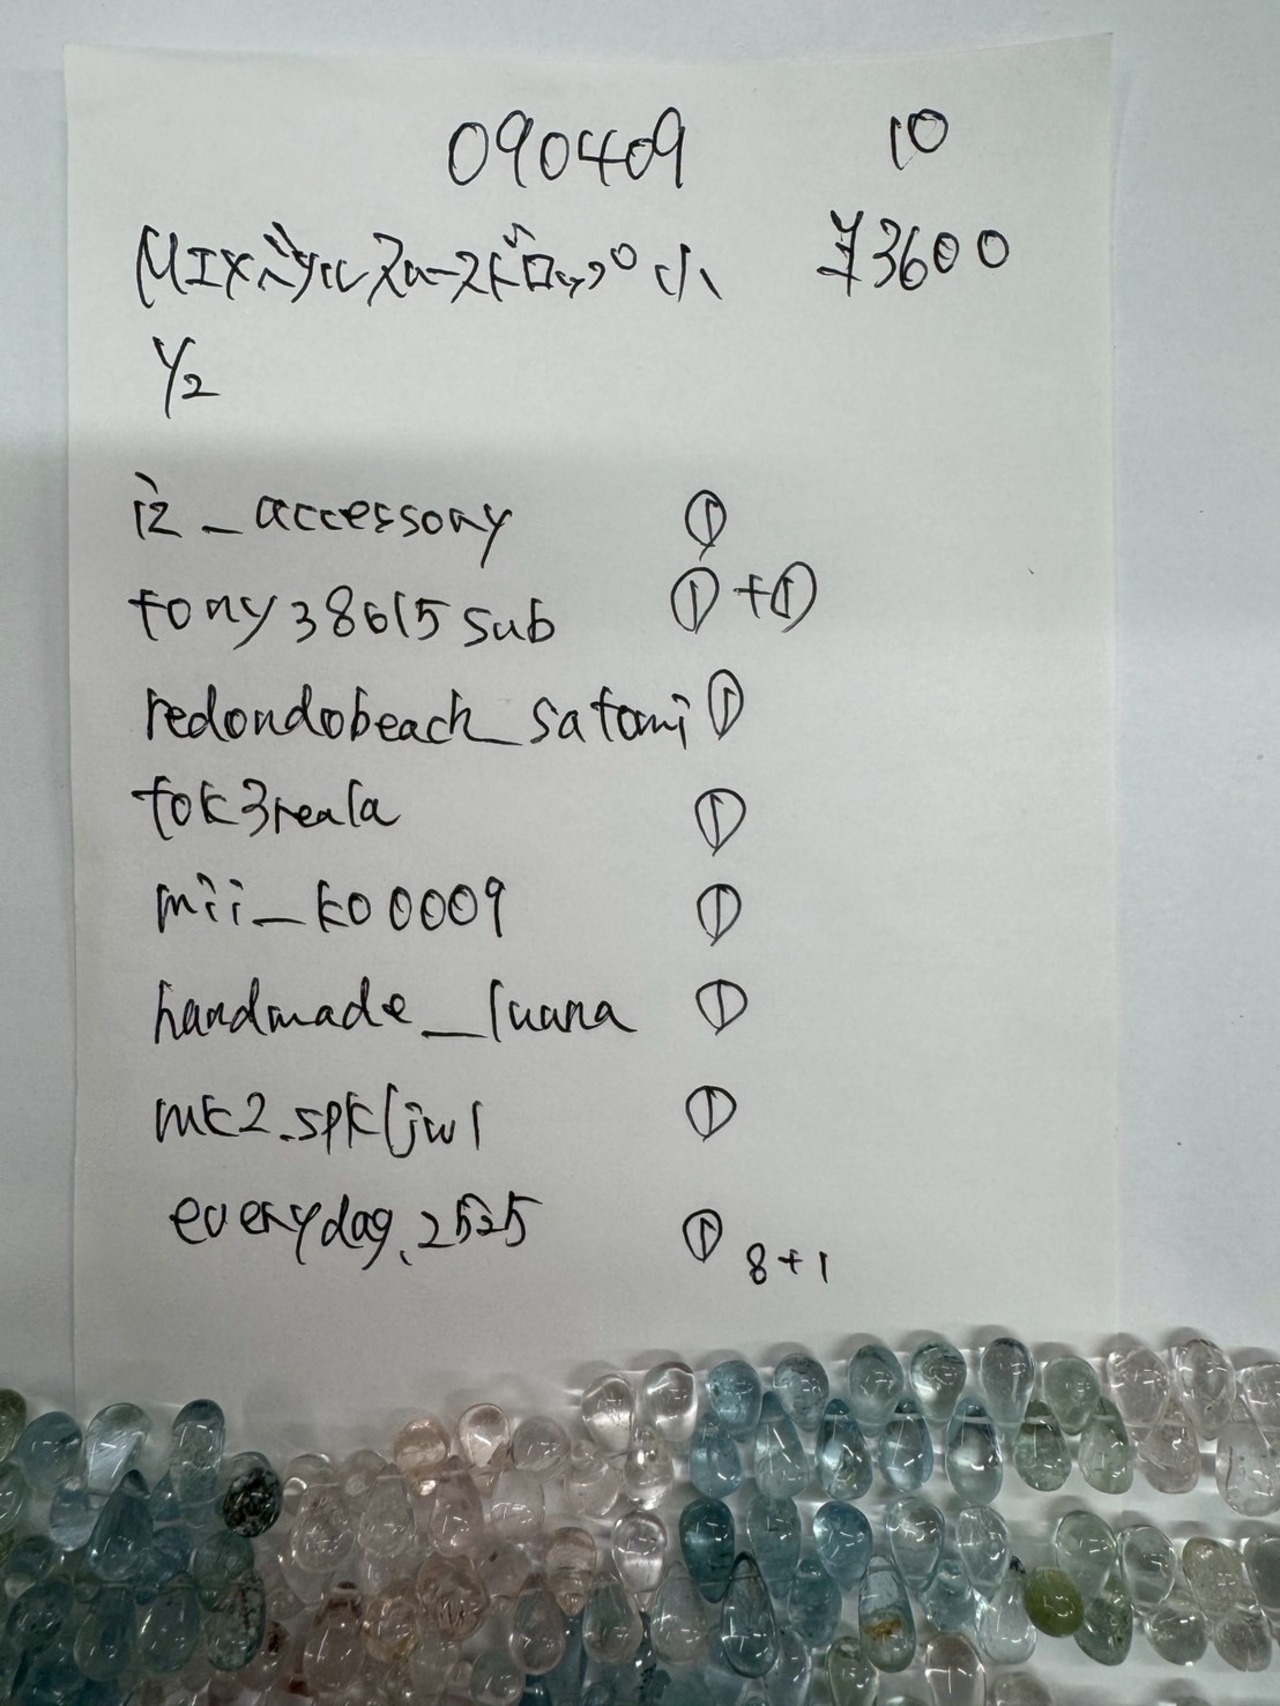 090409 10
MIXベリルスムースドロップ 小 ¥3600
1/2
iz_accessory ①
tony38615sub ①+①
redondobeach_satomi ①
tok3reala ①
mii_ko0009 ①
handmade_luana ①
mk2.spkljwl ①
everydag.2525 ① 8+1